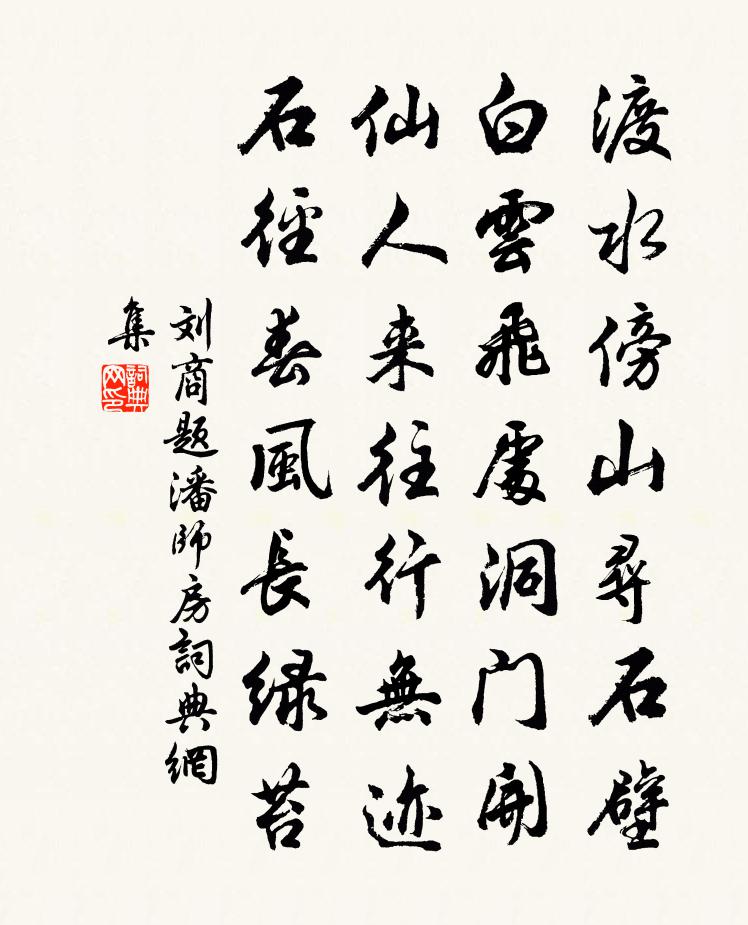 渡水傍山尋石壁
白雲飛處洞門開
仙人来往行無迹
石徑春風長绿苔
刘商题潘師房詞典網
集
詞典
网印